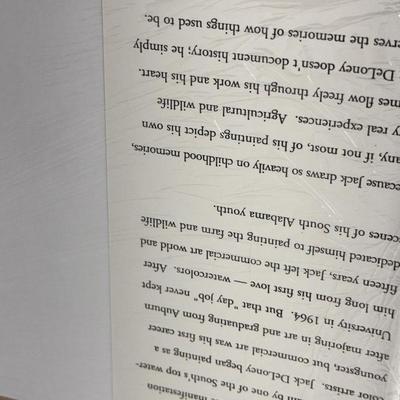 manifestation
by one of the South's top water-
color artists. Jack DeLoney began painting as a
youngster, but commercial art was his first career
after majoring in art and graduating from Auburn
University in 1964. But that "day job" never kept
him long from his first love — watercolors. After
fifteen years, Jack left the commercial art world and
dedicated himself to painting the farm and wildlife
cenes of his South Alabama youth.
ecause Jack draws so heavily on childhood memories,
any, if not most, of his paintings depict his own
y real experiences. Agricultural and wildlife
mes flow freely through his work and his heart.
DeLoney doesn't document history; he simply
erves the memories of how things used to be.